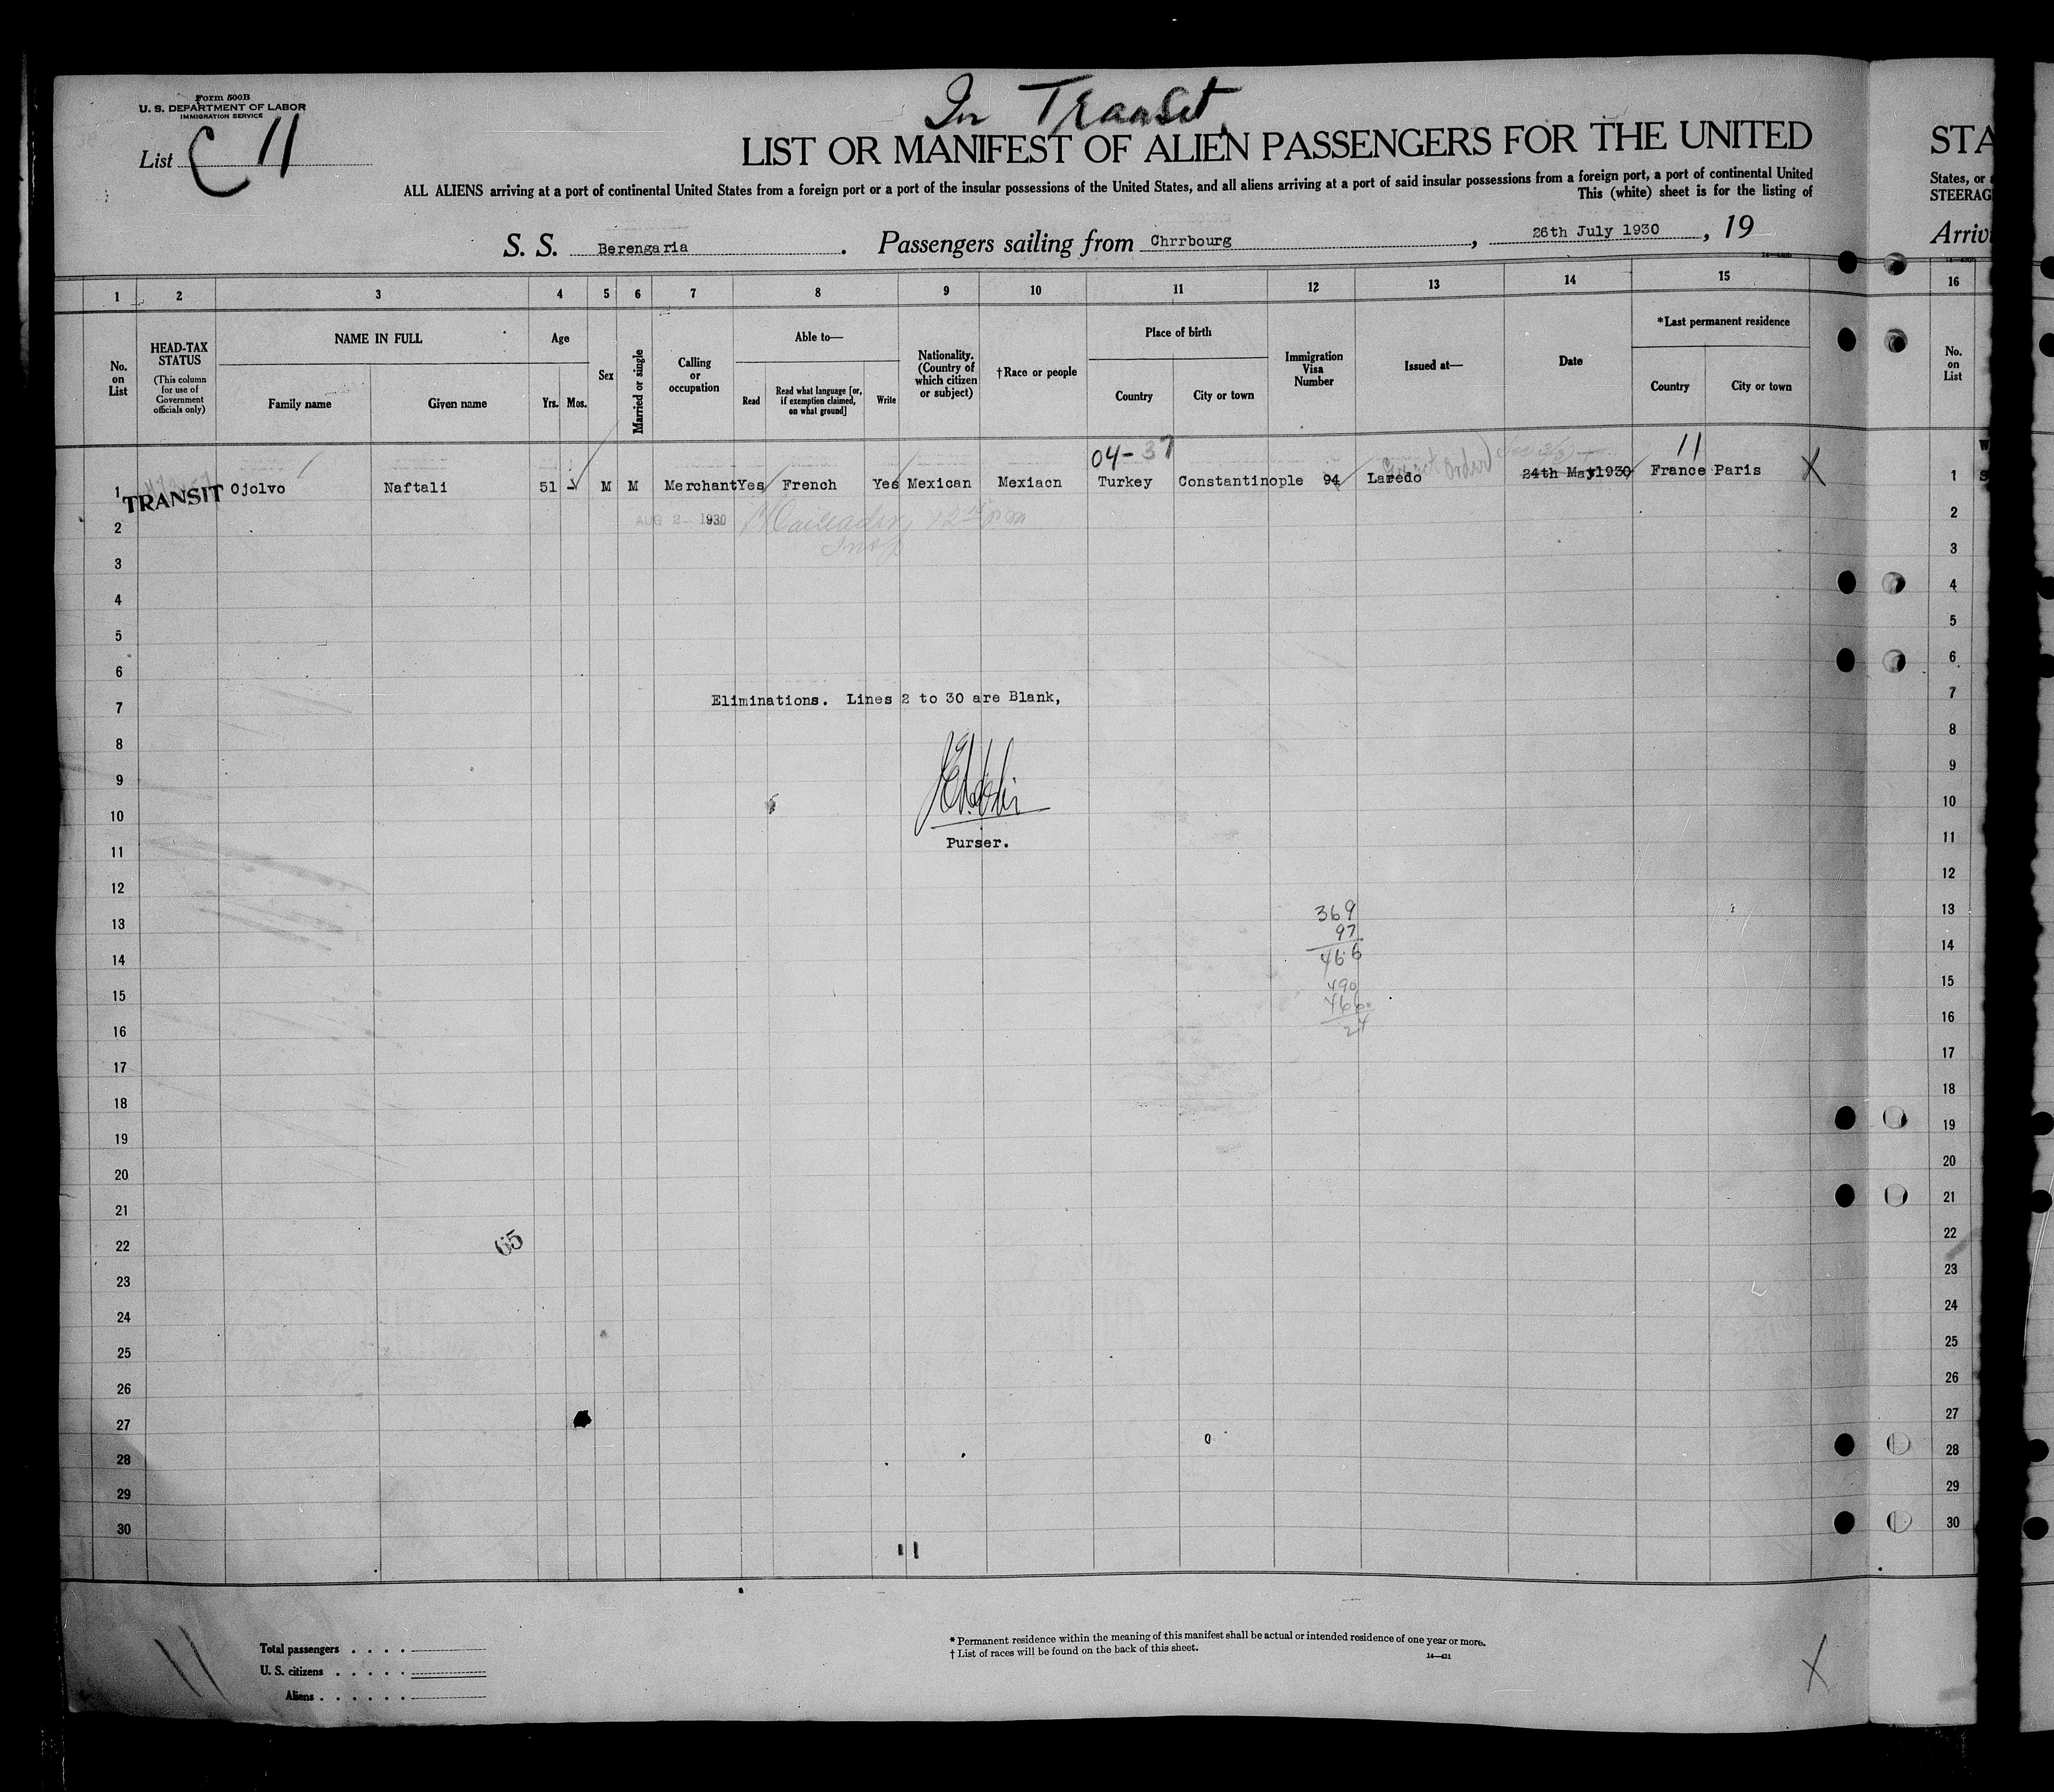 In Transit
Form 500B
U. S. DEPARTMENT OF LABOR
IMMIGRATION SERVICE
List C 11
LIST OR MANIFEST OF ALIEN PASSENGERS FOR THE UNITED
ALL ALIENS arriving at a port of continental United States from a foreign port or a port of the insular possessions of the United States, and all aliens arriving at a port of said insular possessions from a foreign port, a port of continental United
This (white) sheet is for the listing of
S. S. Berengaria . Passengers sailing from Chrrbourg , 26th July 1930 , 19
STA
States, or
STEERAG
Arriv
1 2 3 4 5 6 7 8 9 10 11 12 13 14 15 16
No. on List
HEAD-TAX STATUS
(This column for use of Government officials only)
NAME IN FULL
Family name Given name
Age
Yrs. Mos.
Sex
Married or single
Calling or occupation
Able to—
Read
Read what language [or, if exemption claimed, on what ground]
Write
Nationality. (Country of which citizen or subject)
†Race or people
Place of birth
Country City or town
Immigration Visa Number
Issued at—
Date
*Last permanent residence
Country City or town
No. on List
04-37 11
1 TRANSIT Ojolvo Naftali 51 M M Merchant Yes French Yes Mexican Mexiacn Turkey Constantinople 94 Laredo 24th May 1930 France Paris 1
2 AUG 2 1930 2
3 3
4 4
5 5
6 6
7 Eliminations. Lines 2 to 30 are Blank, 7
8 8
9 9
10 10
Purser.
11 11
12 12
13 369 13
97
14 466 14
15 490 15
466
16 24 16
17 17
18 18
19 19
20 20
21 21
22 65 22
23 23
24 24
25 25
26 26
27 27
28 28
29 29
30 30
11
Total passengers . . . .
U. S. citizens . . . . .
Aliens . . . . . .
* Permanent residence within the meaning of this manifest shall be actual or intended residence of one year or more.
† List of races will be found on the back of this sheet.
14—431